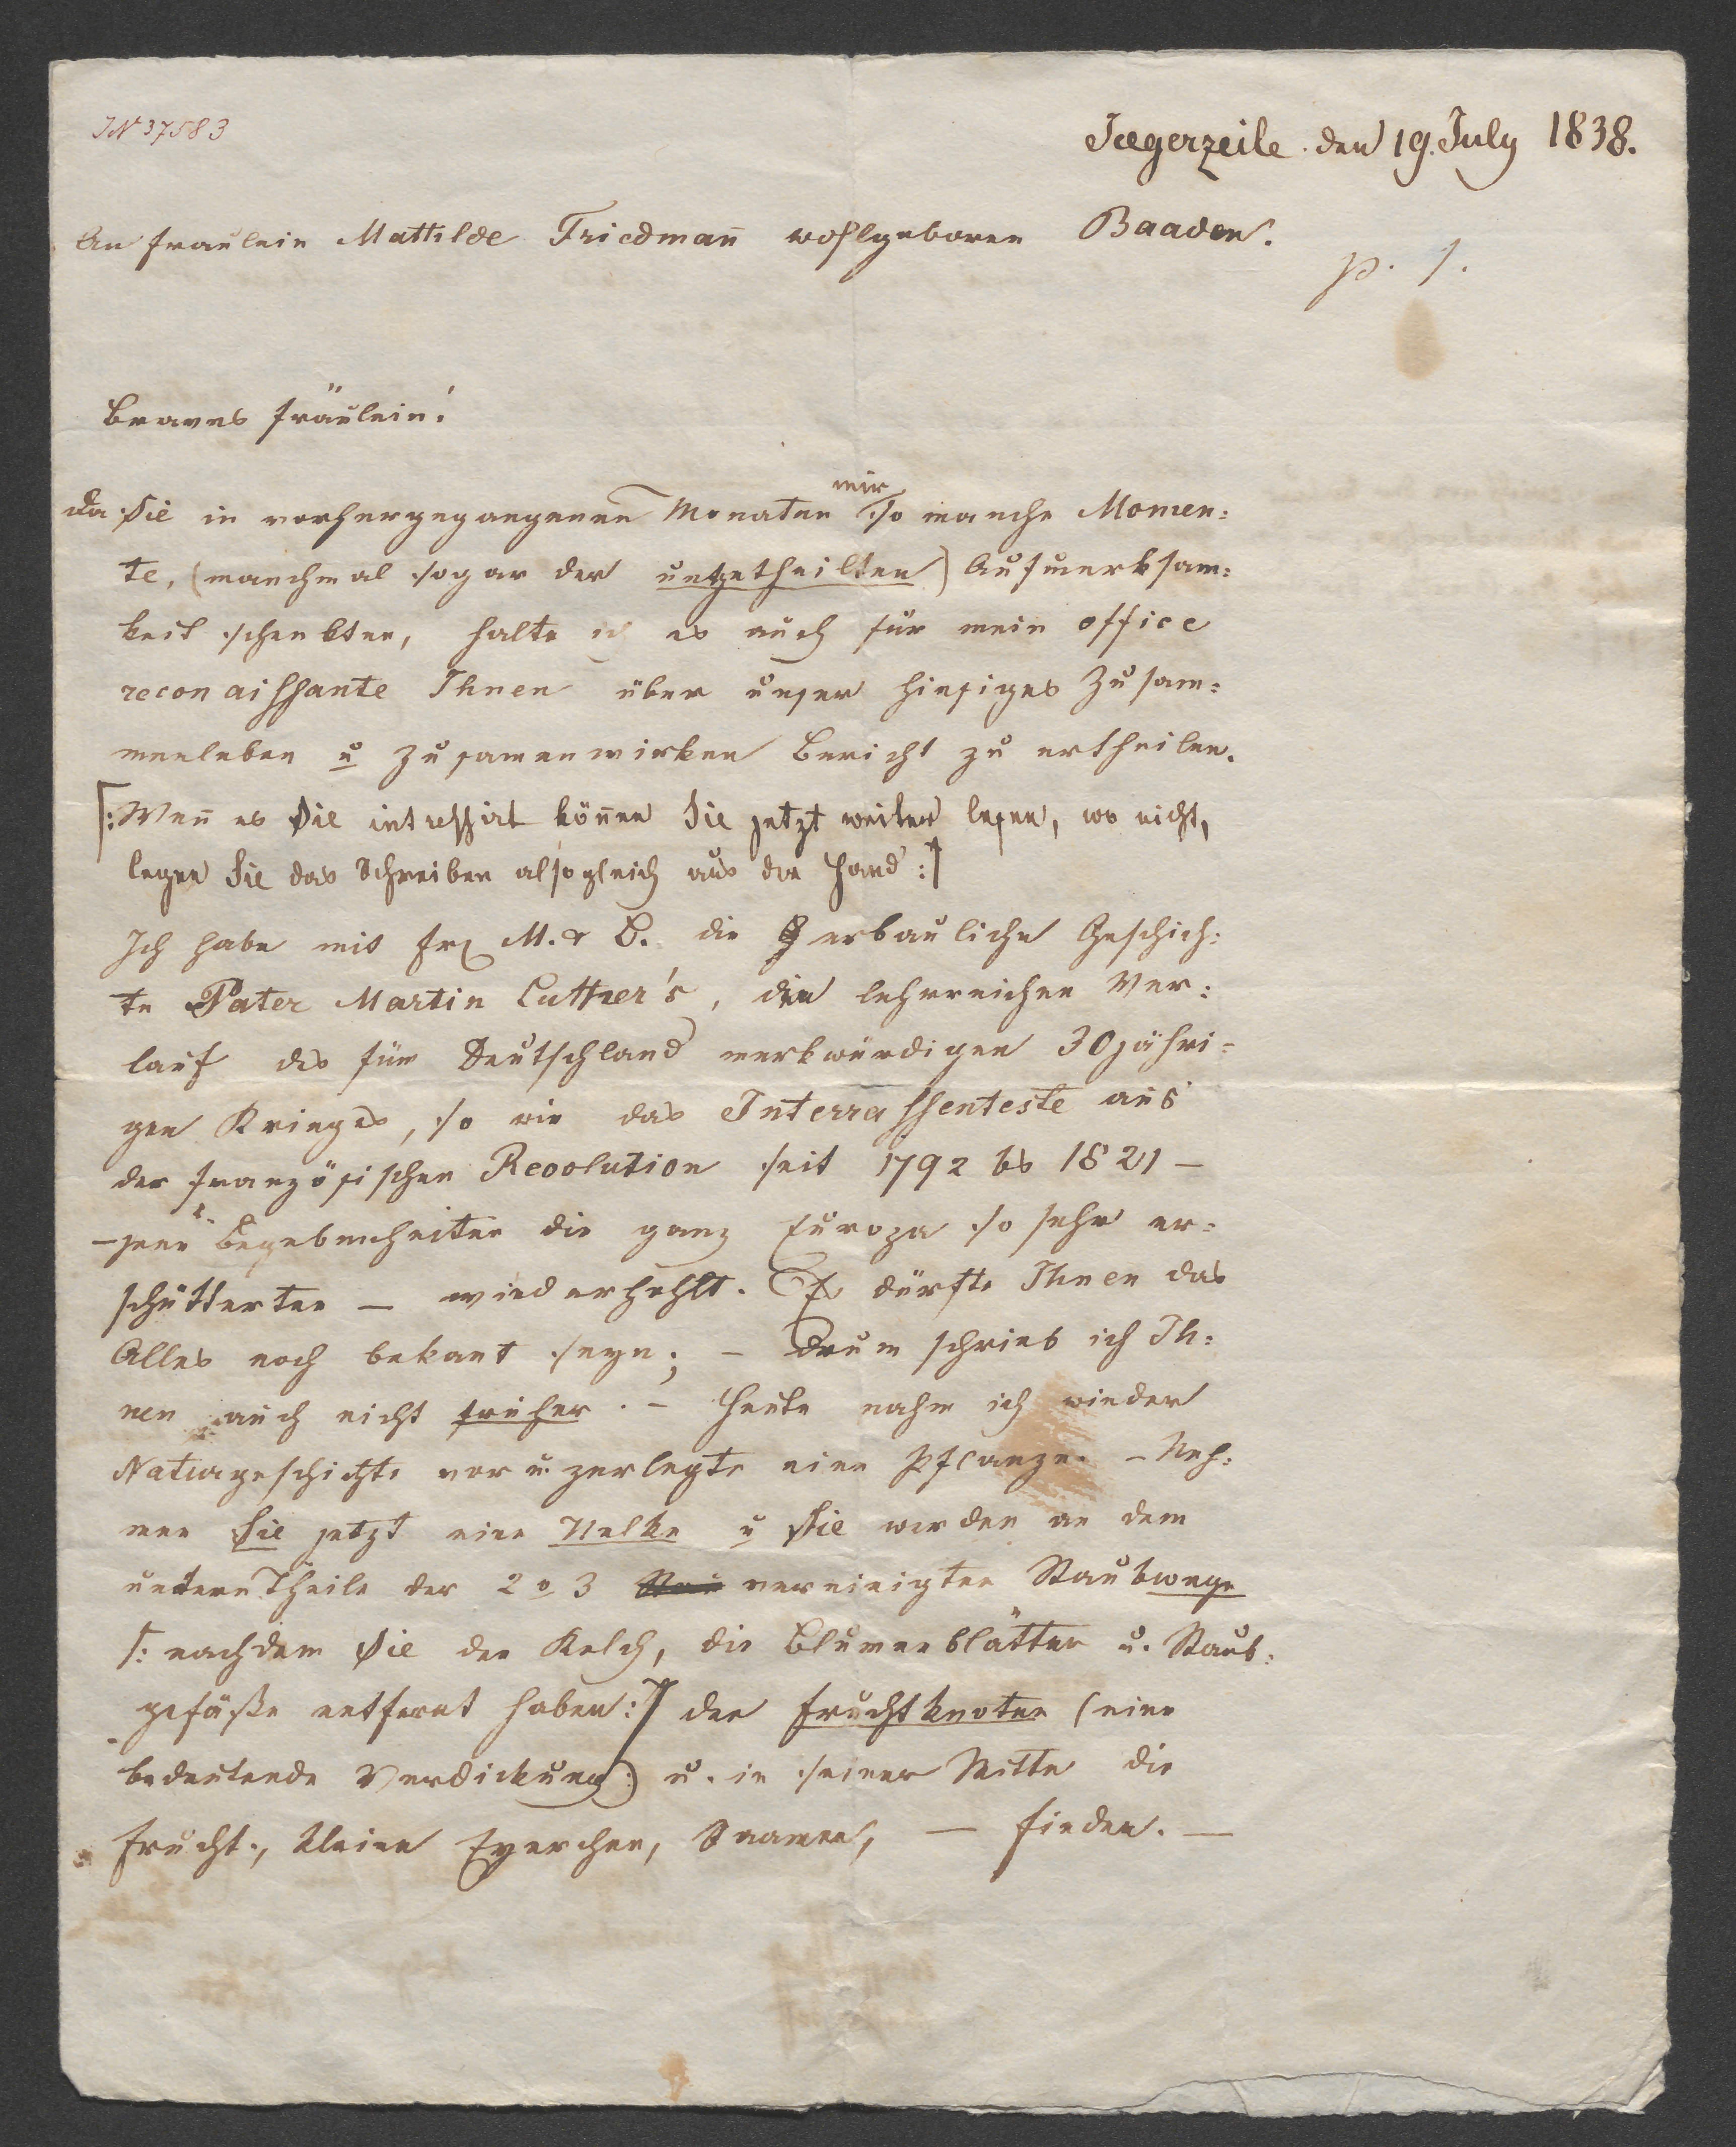 JN 37583
Jaegerzeile den 19. July 1838.
An Fraulein Mathilde Friedman̄ wohlgeboren Baaden.
p. 1.
Braves Fräulein!
mir
Da Sie in vorhergegangenen Monaten so manche Momen:
te, (manchmal sogar der ungetheilten) Aufmerksam:
keit schenkten, halte ich es auch für mein office
reconaissante Ihnen über unser hiesiges Zusam:
menleben u Zusamenwirken Bericht zu ertheilen.
[: Wen̄ es Sie intressirt kön̄en Sie jetzt weiter lesen, wo nicht,
legen Sie das Schreiben alsogleich aus der Hand :]
Ich habe mit Frl M. & B. die erbauliche Geschich:
te Pater Martin Luther's, den lehrreichen Ver:
lauf des für Deutschland merkwürdigen 30jähri=
gen Krieges, so wie das Interrassenteste aus
der französischen Revolution seit 1792 bs 1821 –
– jene Begebenheiten die ganz Europa so sehr er:
schütterten – wiederhohlt. Es dürfte Ihnen das
Alles noch bekant seyn; – Drum schrieb ich Ih:
nen auch nicht früher. – Heute nahm ich wieder
Naturgeschichte vor u. zerlegte eine Pflanze. – Neh:
men Sie jetzt eine Nelke u Sie werden an dem
untern Theile der 2 o 3 vereinigten Staubwege
[: nachdem Sie den Kelch, die Blumenblätter u. Staub:
gefäße entfernt haben :] den Fruchtknoten (eine
bedeutende Verdickung) u. in seiner Mitte die
Frucht, kleine Eyerchen, Saamen, – finden. –